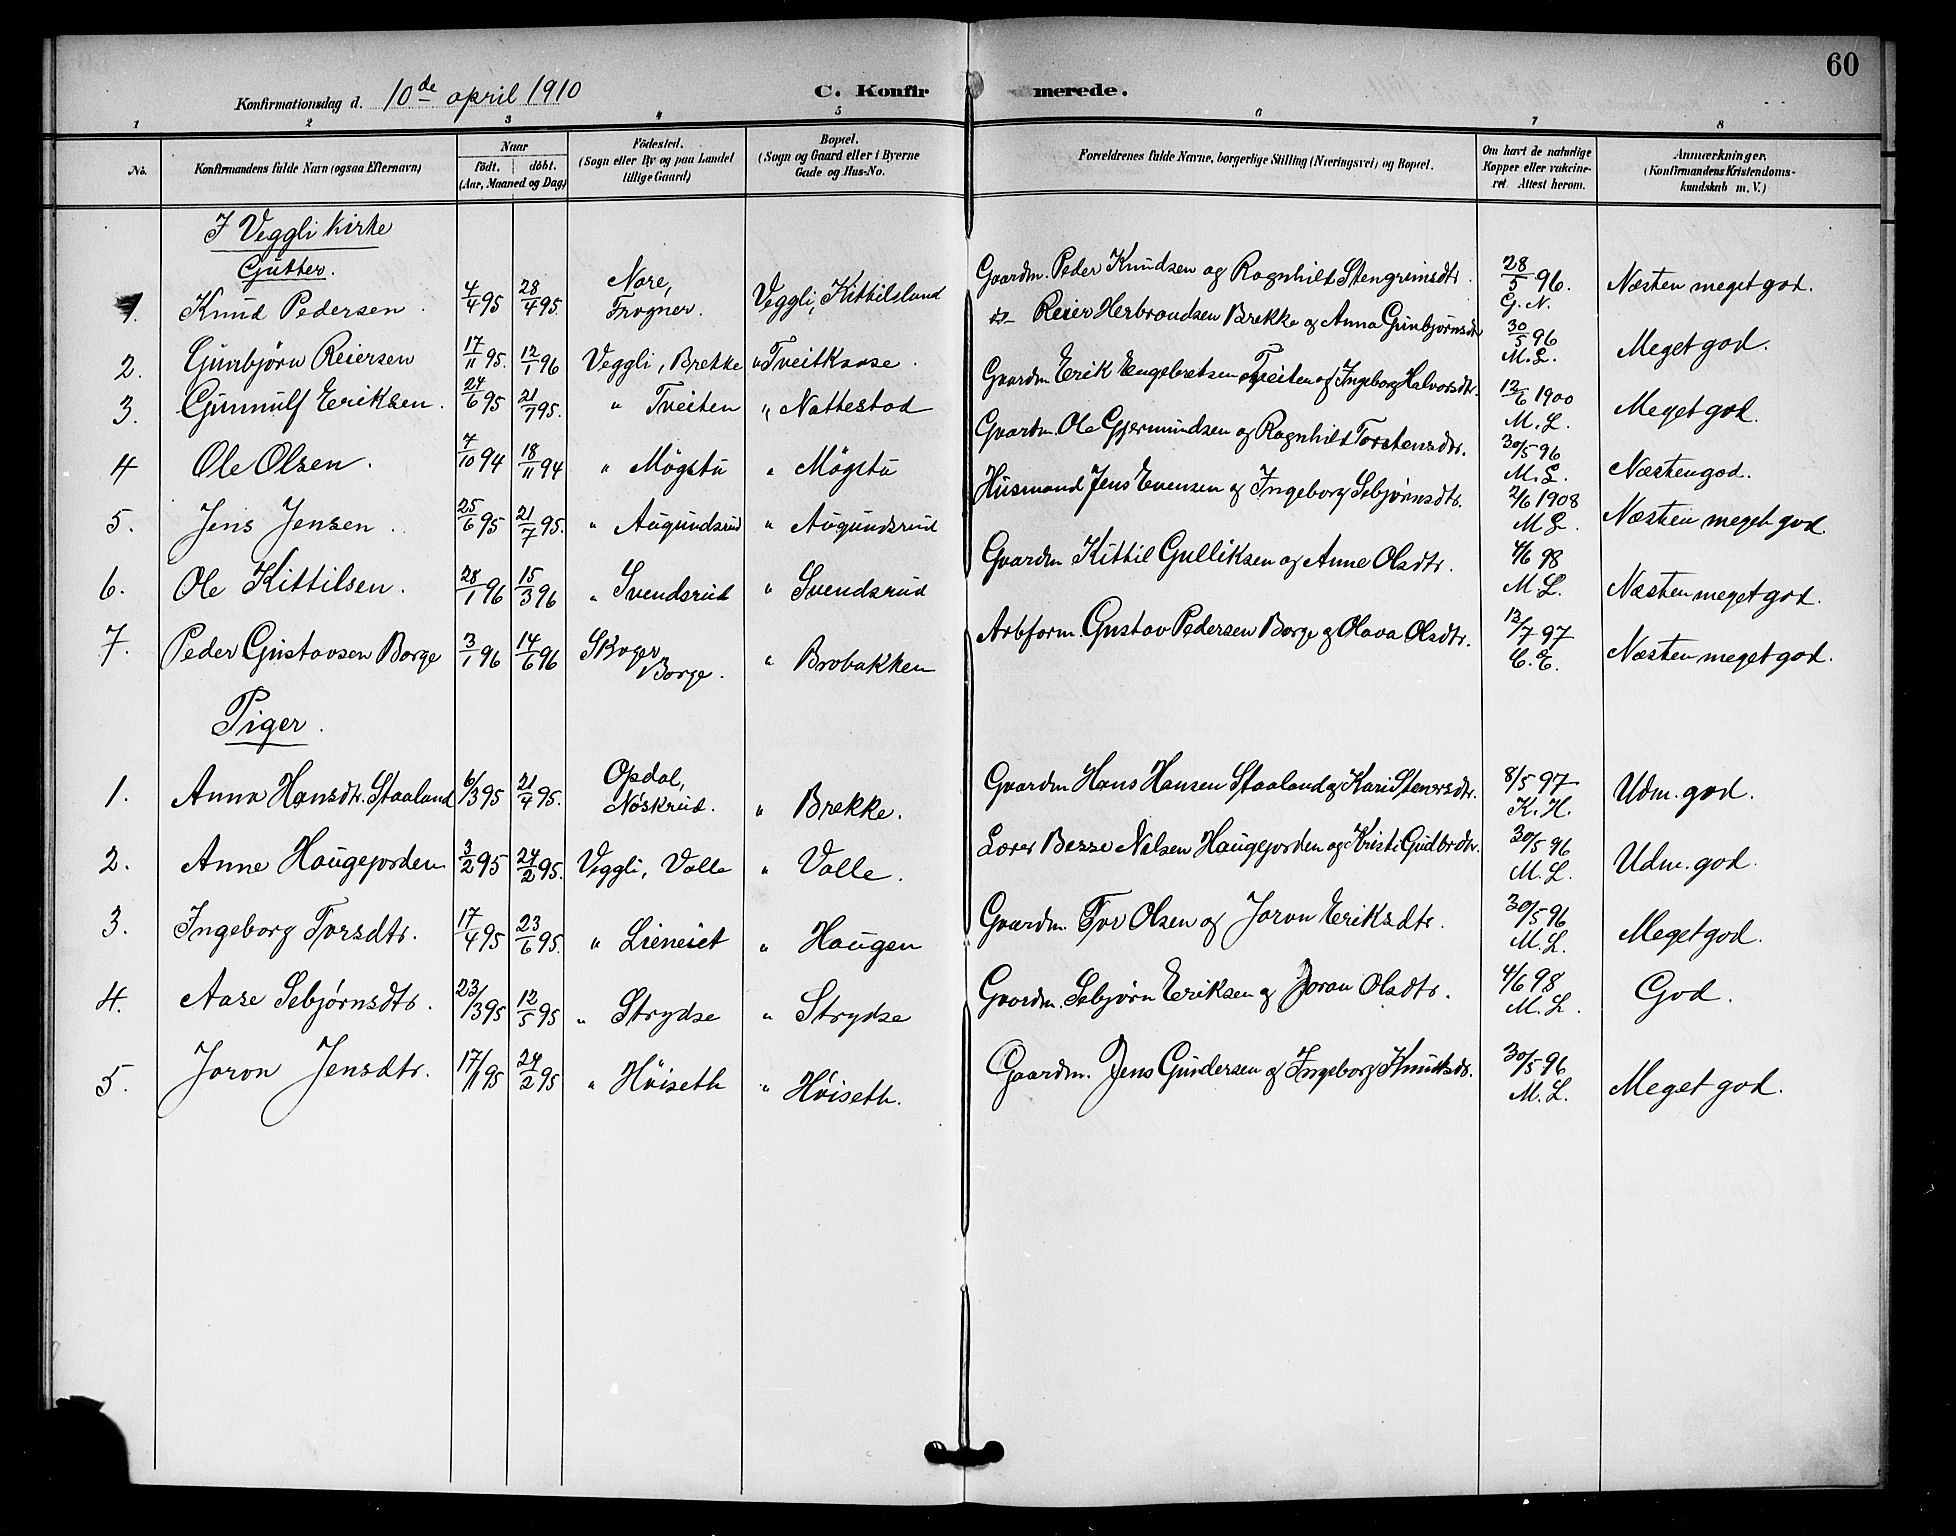 60
Konfirmationsdag d. 10de april 1910 C. Konfirmerede.
1 2 3 4 5 6 7 8
No. Konfirmandens fulde Navn (ogsaa Efternavn) Naar födt. döbt. (Aar, Maaned og Dag) Födested. (Sogn eller By og paa Landet tillige Gaard) Bopæl. (Sogn og Gaard eller i Byerne Gade og Hus-No. Forældrenes fulde Navne, borgerlige Stilling (Næringsvei) og Bopæl. Om havt de naturlige Kopper eller vakcineret. Attest herom. Anmærkninger. (Konfirmandens Kristendomskundskab m. V.)
I Veggli kirke
Gutter.
1. Knud Pedersen. 4/4 95 28/4 95. Nore, Frogner. Veggli, Kittilsland Gaardm. Peder Knudsen og Ragnhild Stengrimsdtr. 28/5 96. G. N. Næsten meget god.
2. Gunbjörn Reiersen 17/11 95. 12/1 96 Veggli, Brekke " Tveitkaase. do Reier Herbrandsen Brekke og Anna Gunbjørnsdtr 30/5 96 M. L. Meget god.
3. Gunnulf Eriksen. 24/6 95 21/7 95. " Tveiten " Nattestad Gaardm Erik Engebretsen Tveiten og Ingeborg Halvorsdtr. 12/6 1900 M. L. Meget god.
4 Ole Olsen. 7/10 94 18/11 94 " Mögstu " Mögstu Gaardm. Ole Gjermundsen og Ragnhild Torstensdtr. 30/5 96 M. L. Næsten god.
5. Jens Jensen. 25/6 95 21/7 95. " Augundsrud " Augundsrud Husmand Jens Evensen og Ingeborg Sebjørnsdtr. 2/6 1908 M L. Næsten meget god.
6. Ole Kittilsen. 28/1 96 15/3 96 " Svendsrud " Svendsrud Gaardm Kittil Gulliksen og Anne Olsdtr. 4/6 98 M L. Næsten meget god.
7. Peder Gustavsen Borge 3/1 96 14/6 96 Skoger Borge. " Brobakken Arbform. Gustav Pedersen Borge og Olava Olsdtr. 12/7 97 C. E. Næsten meget god.
Piger.
1. Anna Hansdtr. Staaland 6/3 95 21/4 95. Opdal, Nøskrud. " Brekke. Gaardm Hans Hansen Staaland og Kari Stenersdtr. 8/5 97 K. H. Udm. god.
2. Anne Haugejorden 3/2 95 24/2 95. Veggli, Valle " Valle. Lærer Besse Nilsen Haugejorden og Kristi Gudbrdtr. 30/5 96 M. L. Udm. god.
3. Ingeborg Torsdtr. 17/4 95 23/6 95. " Lieneiet " Haugen Gaardm. Tor Olsen og Joron Eriksdtr. 30/5 96 M. L. Meget god.
4. Aase Sebjørnsdtr. 23/3 95 12/5 95 " Strydse " Strydse Gaardm. Sebjørn Eriksen og Joran Olsdtr. 4/6 98 M. L. God.
5. Joron Jensdtr. 17/11 95 24/2 95 " Höiseth " Höiseth. Gaardm. Jens Gundersen og Ingeborg Knutsdtr. 30/5 96 M. L. Meget god.